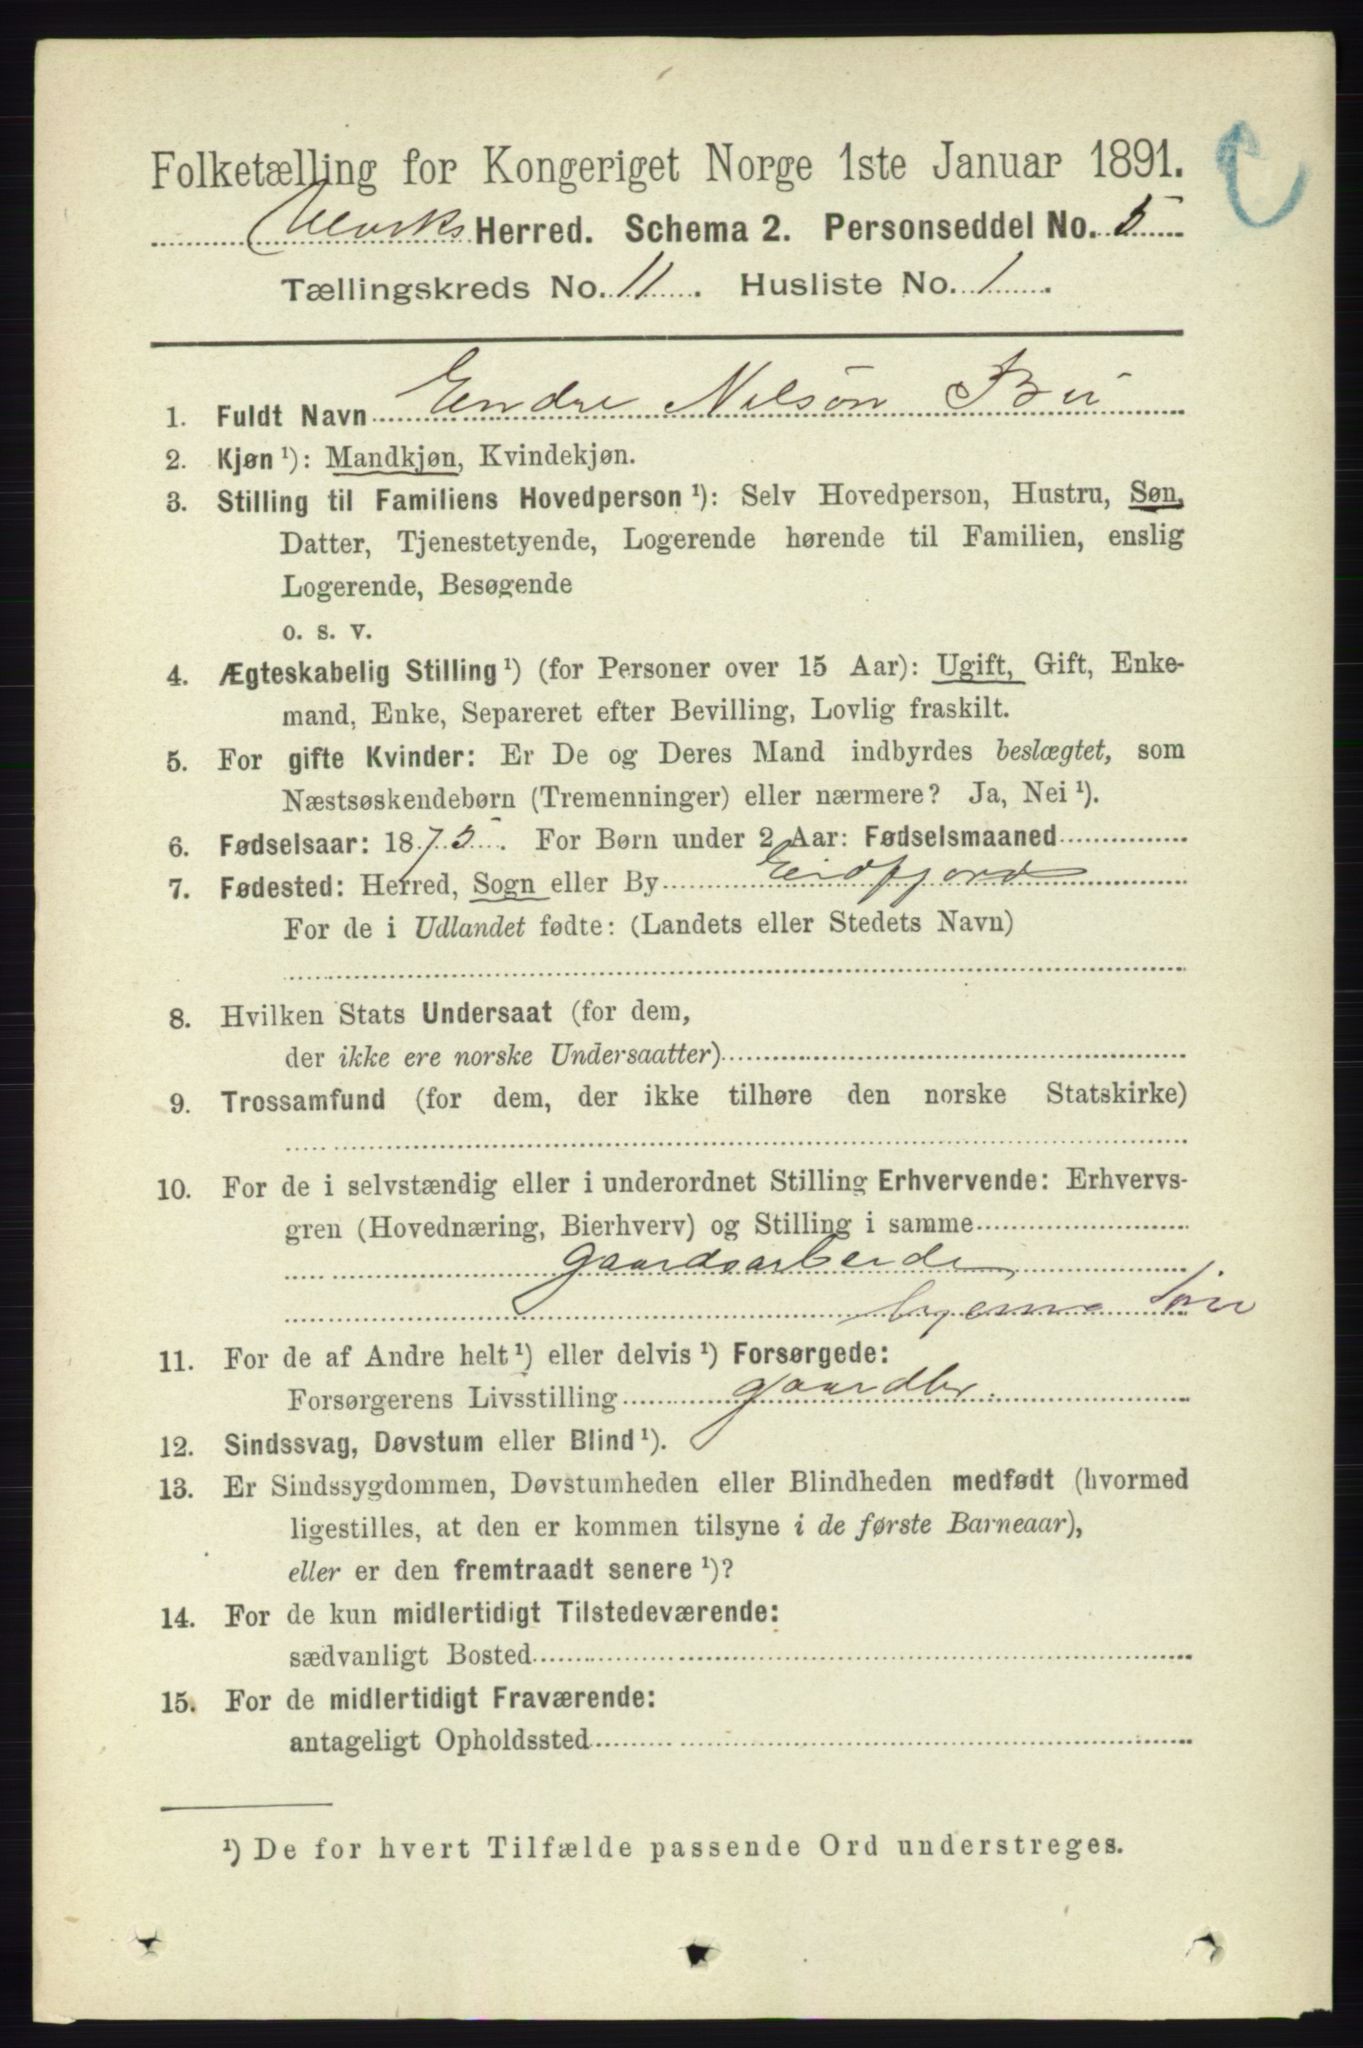 Folketælling for Kongeriget Norge 1ste Januar 1891.
Ulviks Herred. Schema 2. Personseddel No. 5
Tællingskreds No. 11. Husliste No. 1.
1. Fuldt Navn Endre Nelson Bu
2. Kjøn ¹): Mandkjøn, Kvindekjøn.
3. Stilling til Familiens Hovedperson ¹): Selv Hovedperson, Hustru, Søn,
Datter, Tjenestetyende, Logerende hørende til Familien, enslig
Logerende, Besøgende
o. s. v.
4. Ægteskabelig Stilling ¹) (for Personer over 15 Aar): Ugift, Gift, Enke-
mand, Enke, Separeret efter Bevilling, Lovlig fraskilt.
5. For gifte Kvinder: Er De og Deres Mand indbyrdes beslægtet, som
Næstsøskendebørn (Tremenninger) eller nærmere? Ja, Nei ¹).
6. Fødselsaar: 1875. For Børn under 2 Aar: Fødselsmaaned
7. Fødested: Herred, Sogn eller By Eidfjord
For de i Udlandet fødte: (Landets eller Stedets Navn)
8. Hvilken Stats Undersaat (for dem,
der ikke ere norske Undersaatter)
9. Trossamfund (for dem, der ikke tilhøre den norske Statskirke)
10. For de i selvstændig eller i underordnet Stilling Erhvervende: Erhvervs-
gren (Hovednæring, Bierhverv) og Stilling i samme
gaardsarbeide
hjemme
11. For de af Andre helt ¹) eller delvis ¹) Forsørgede:
Forsørgerens Livsstilling gaardbr.
12. Sindssvag, Døvstum eller Blind ¹).
13. Er Sindssygdommen, Døvstumheden eller Blindheden medfødt (hvormed
ligestilles, at den er kommen tilsyne i de første Barneaar),
eller er den fremtraadt senere ¹)?
14. For de kun midlertidigt Tilstedeværende:
sædvanligt Bosted
15. For de midlertidigt Fraværende:
antageligt Opholdssted
¹) De for hvert Tilfælde passende Ord understreges.